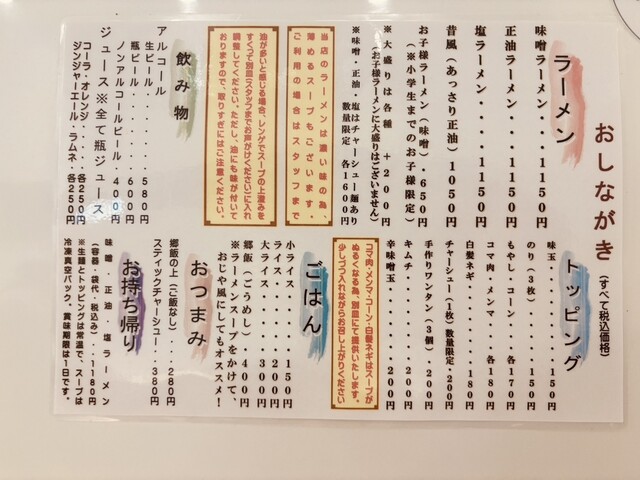 おしながき（すべて税込価格）
ラーメン
味噌ラーメン・・・１１５０円
正油ラーメン・・・１１５０円
塩ラーメン・・・・１１５０円
昔風（あっさり正油）１０５０円
お子様ラーメン（味噌）・６５０円
（※小学生までのお子様限定）
※大盛りは各種＋２００円
（お子様ラーメンに大盛りはございません）
※味噌・正油・塩はチャーシュー麺あり
数量限定 各１６００円
当店のラーメンは濃い味の為、
薄めるスープもございます。
ご利用の場合はスタッフまで
油が多いと感じる場合、レンゲでスープの上澄みを
すくって別皿（スタッフまでお声がけください）に入れ
調整してください。ただし、油にも味が付いて
おりますので、取りすぎにはご注意ください。
飲み物
アルコール
生ビール・・・・・５８０円
瓶ビール・・・・・６００円
ノンアルコールビール・４００円
ジュース※全て瓶ジュース
コーラ・オレンジ・・・各２５０円
ジンジャーエール・ラムネ・各２５０円
トッピング
味玉・・・・・・・・１５０円
のり（３枚）・・・・１５０円
もやし・コーン・・各１７０円
コマ肉・メンマ・・各１８０円
白髪ネギ・・・・・・１８０円
チャーシュー（１枚）数量限定・２００円
手作りワンタン（３個）２００円
キムチ・・・・・・・２００円
辛味噌玉・・・・・・２００円
コマ肉・メンマ・コーン・白髪ネギはスープが
ぬるくなる為、別皿にて提供いたします。
少しづつ入れながらお召し上がりください
ごはん
小ライス・・・・・１５０円
ライス・・・・・・２００円
大ライス・・・・・３００円
郷飯（ごうめし）・４００円
※ラーメンスープをかけて、
おじや風にしてもオススメ！
おつまみ
郷飯の上（ご飯なし）・・・２８０円
スティックチャーシュー・・３８０円
お持ち帰り
味噌・正油・塩ラーメン
（容器・袋代・税込み）・・１１８０円
※生麺とトッピングは常温で、スープは
冷凍真空パック、賞味期限は１日です。